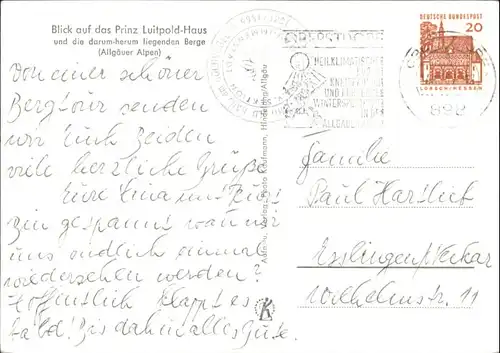 Blick auf das Prinz Luitpold-Haus
und die darum-herum liegenden Berge
(Allgäuer Alpen)
Von einer schönen
Bergtour senden
wir Euch beiden
viele herzliche Grüße
Eure Lina und
Bin gespannt wann wir
uns endlich einmal
wiedersehen werden?
Hoffentlich klappt es
bald! Bis dahin alles Gute.
Foto Kaufmann, Hindelang/Allgäu
OBERSTDORF
HEILKLIMATISCHER
UND
WINTERSPORT
IN DEN
ALLGÄUER
DEUTSCHE BUNDESPOST
20
LORSCH/HESSEN
892
Familie
Paul Hartlieb
Esslingen/Neckar
Wilhelmstr. 11